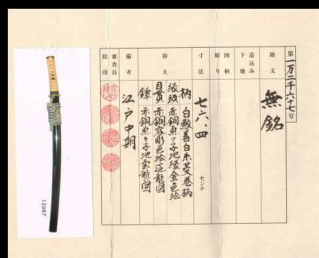 第一万二千六十七号
銘文 無銘
造込み
下地
図柄
彫り
寸法 七六・四 センチ
拵え 柄 白鮫着白糸菱巻柄
縁頭 赤銅魚々子地
目貫 赤銅容彫色絵
鐔 赤銅魚々子地
備考 江戸中期
審査員
捺印
12067